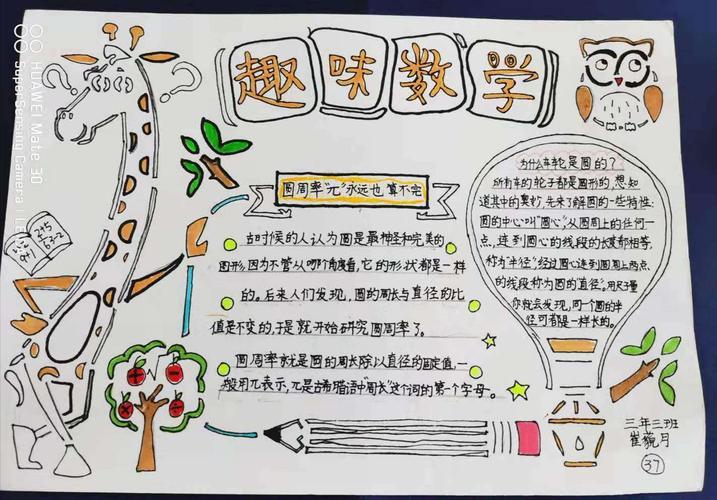 趣味数学
圆周率"π"永远也算不完
古时候的人认为圆是最神经和完美的
图形,因为不管从哪个角度看,它的形状都是一样
的。后来人们发现,圆的周长与直径的比
值是不变的,于是就开始研究圆周率了。
圆周率就是圆的周长除以直径的固定值,一
般用π表示,π是古希腊语中"周长"这个词的第一个字母。
为什么车轮是圆的?
所有车的轮子都是圆形的,想知
道其中的奥妙,先来了解圆的一些特性:
圆的中心叫"圆心",从圆周上的任何一
点,连到圆心的线段的长度都相等,
称为"半径";经过圆心连到圆周上两点
的线段称为圆的直径。用尺子量
你就会发现,同一个圆的半
径可都是一样长的。
三年三班
37
HUAWEI Mate 30